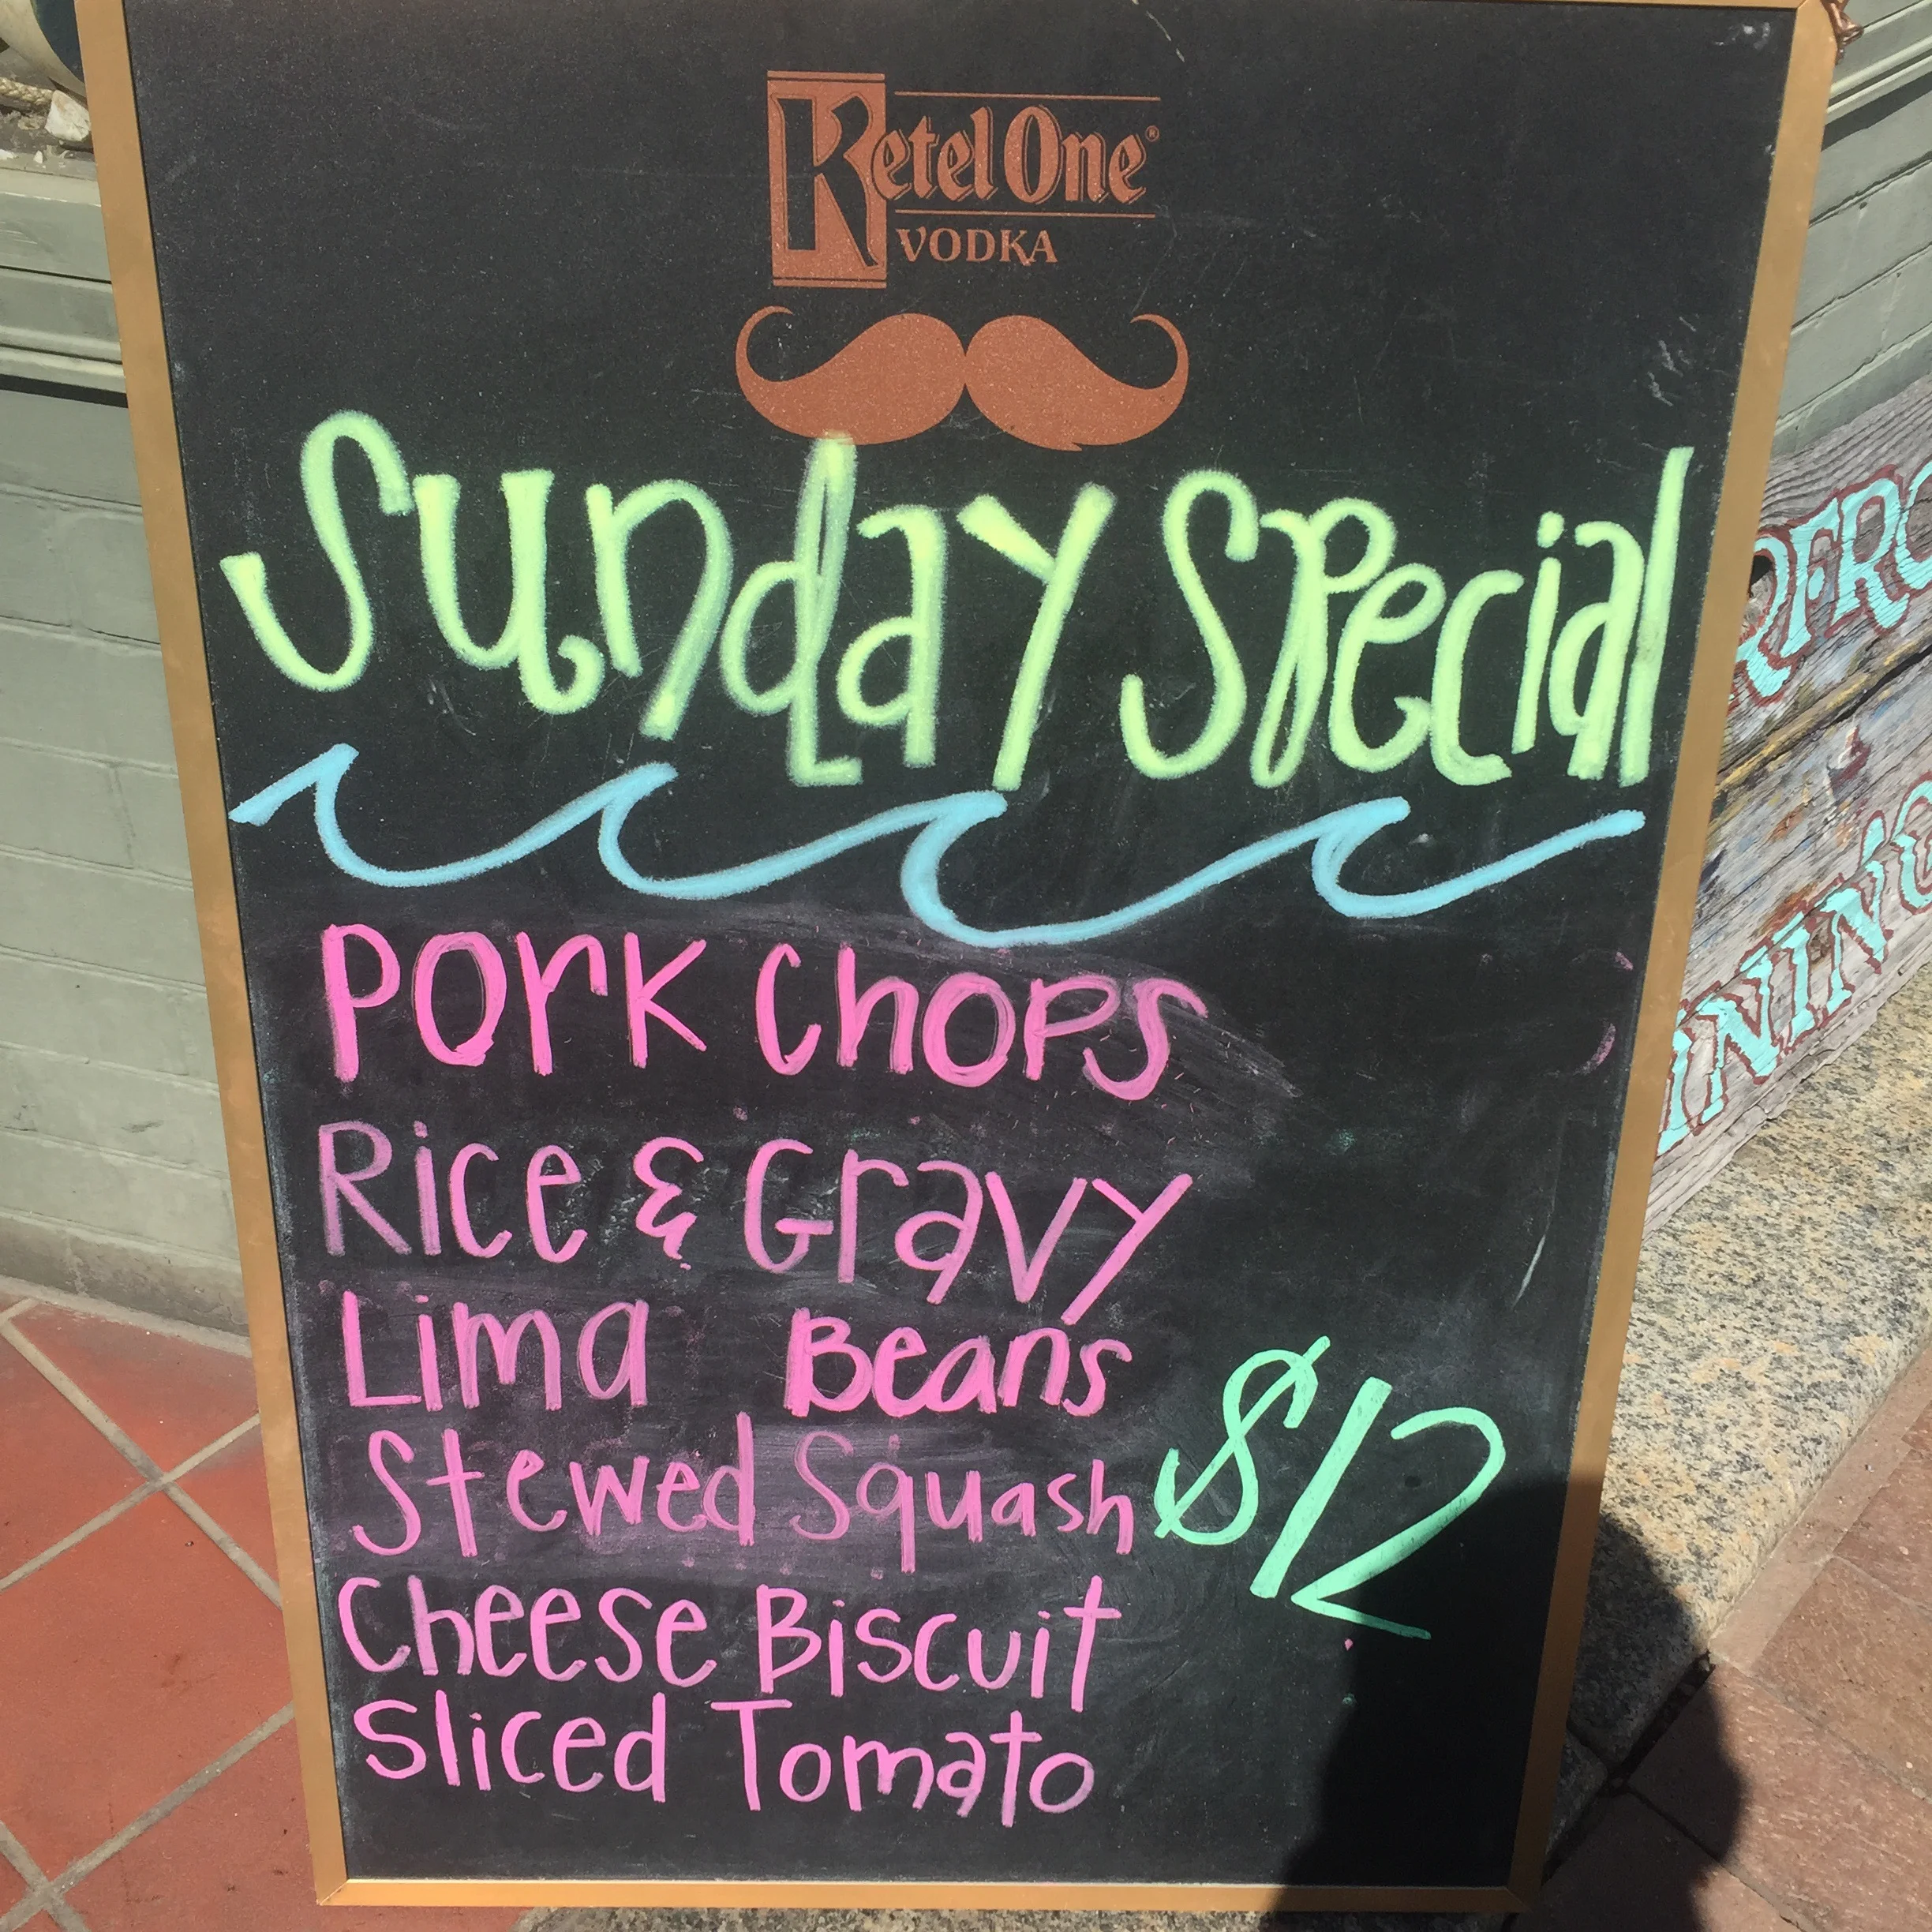 Ketel One®
VODKA
Sunday Special
Pork Chops
Rice & Gravy
Lima Beans
Stewed Squash
$12
Cheese Biscuit
Sliced Tomato